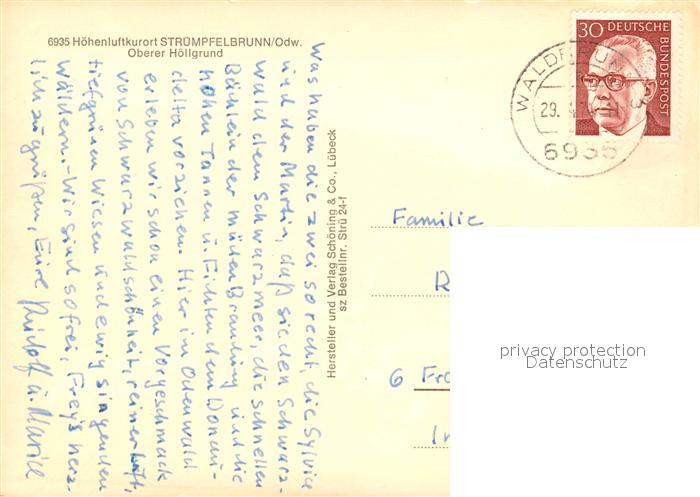 6935 Höhenluftkurort STRÜMPFELBRUNN/Odw.
Oberer Höllgrund
Was haben die zwei so recht, die Sylvia
und der Martin, daß sie den Schwarz-
wald dem Schwarzmeer, die schnellen
Bächlein der müden Brandung und die
hohen Tannen u. Fichten dem Donau-
delta vorziehen. Hier im Odenwald
erleben wir schon einen Vorgeschmack
von Schwarzwaldschönheit, reiner Luft,
tiefgrünen Wiesen und ewig singenden
Wäldern. - Wir sind so frei, Frey's herz-
lich zu grüßen, Eure Rudolf u. Marie
Hersteller und Verlag Schöning & Co., Lübeck
sz Bestellnr. Strü 24-f
30 DEUTSCHE
BUNDESPOST
29.
6935
Familie
R
6 Fra
privacy protection
Datenschutz